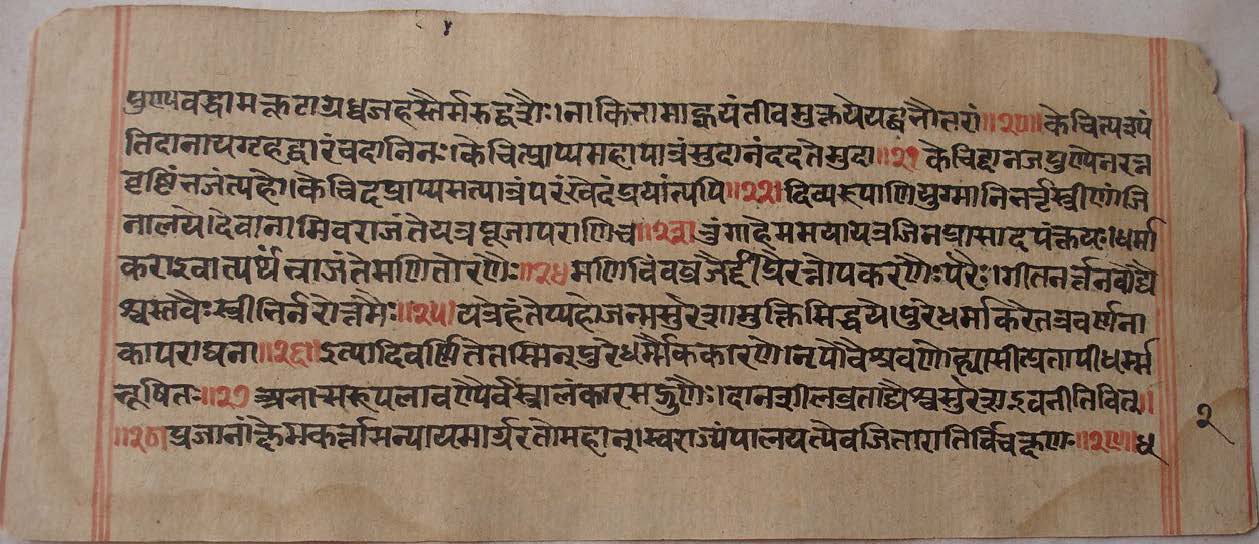 पुण्यवद्धामकूटाग्रध्वजहस्तैर्मरुद्वशैः। नाकिनामाह्वयंतीव मुक्तये यद्घनौतरां॥२०॥ केचित्पश्यं
तिदानाय गृहद्वारं च दानिनः। केचित्प्राप्य महापात्रं सुदानं ददते मुदा॥२१॥ केचिद्दानजपुण्येन रत्न
वृष्टिं भजंत्यहो। केचिदप्राप्य सत्पात्रं परं खेदं प्रयांत्यपि॥२२॥ दिव्यरूपाणि युग्मानि नर्तृस्त्रीणां जि
नालये। देवानामिव राजंते यत्र पूजापराणि च॥२३॥ तुंगा हेममया यत्र जिनप्रासादपंक्तयः। धर्मा
करा इवात्यर्थं भ्राजंते मणितोरणैः॥२४॥ मणिबिंबव्रजैर्दीप्रै रत्नोपकरणैः परैः। गीतनर्त्तनवाद्यै
श्च स्तवैः स्त्रीभिर्नरोत्तमैः॥२५॥ यत्रेहंतेप्यहो जन्म सुरेशा मुक्तिसिद्धये। पुरे धर्माकरे तत्र वर्णना
कापराघना॥२६॥ इत्यादिवर्णिते तस्मिन् पुरे धर्मैककारणे। नृपो वैश्रवणो ह्यासीत्प्रतापी धर्म्म
भूषितः॥२७॥ आभात्स रूपलावण्यैर्वस्त्रालंकारसद्गुणैः। दानशीलव्रताद्यैश्च सुरेश इव नीतिवित्॥
॥२८॥ प्रजानां क्षेमकर्त्तासन्यायमार्गरतो महान्। स्वराज्यं पालयत्येव जितारातिर्विचक्षणः॥२९॥ ध
२